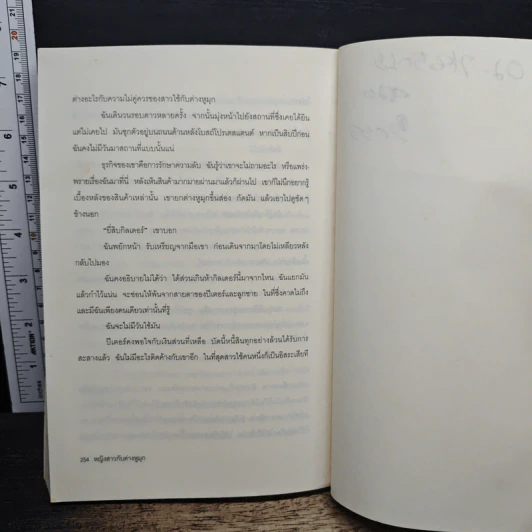 ต่างอะไรกับความไม่คู่ควรของสาวใช้กับต่างหูมุก
ฉันเดินวนรอบดาวหลายครั้ง จากนั้นมุ่งหน้าไปยังสถานที่ซึ่งเคยได้ยิน
แต่ไม่เคยไป มันซุกตัวอยู่บนถนนด้านหลังโบสถ์โปรเตสแตนต์ หากเป็นสิบปีก่อน
ฉันคงไม่มีวันมาสถานที่แบบนั้นแน่
ธุรกิจของเขาคือการรักษาความลับ ฉันรู้ว่าเขาจะไม่ถามอะไร หรือแพร่ง-
พรายเรื่องฉันมาที่นี่ หลังเห็นสินค้ามากมายผ่านมาแล้วก็ผ่านไป เขาก็ไม่นึกอยากรู้
เบื้องหลังของสินค้าเหล่านั้น เขายกต่างหูมุกขึ้นส่อง กัดมัน แล้วเอาไปดูชัดๆ
ข้างนอก
"ยี่สิบกิลเดอร์" เขาบอก
ฉันพยักหน้า รับเหรียญจากมือเขา ก่อนเดินจากมาโดยไม่เหลียวหลัง
กลับไปมอง
ฉันคงอธิบายไม่ได้ว่า ได้ส่วนเกินห้ากิลเดอร์นี้มาจากไหน ฉันแยกมัน
แล้วกำไว้แน่น จะซ่อนให้พ้นจากสายตาของปีเตอร์และลูกชาย ในที่ซึ่งคาดไม่ถึง
และมีฉันเพียงคนเดียวเท่านั้นที่รู้
ฉันจะไม่มีวันใช้มัน
ปีเตอร์คงพอใจกับเงินส่วนที่เหลือ บัดนี้หนี้สินทุกอย่างล้วนได้รับการ
สะสางแล้ว ฉันไม่มีอะไรติดค้างกับเขาอีก ในที่สุดสาวใช้คนหนึ่งก็เป็นอิสระเสียที
254 หญิงสาวกับต่างหูมุก